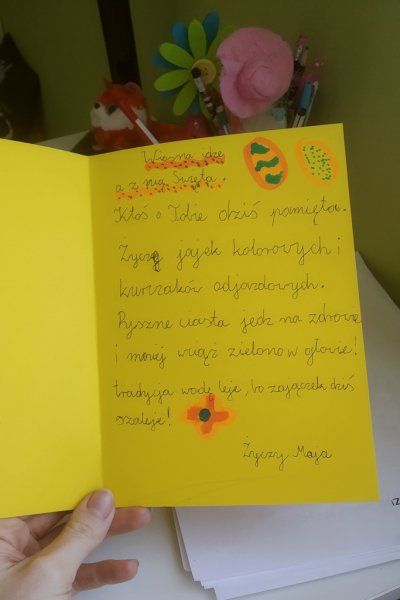 Wiosna idze
a z nią Swęta.
Ktoś o Tobie dziś pamięta.
Życzę jajek kolorowych i
kurczaków odjazdowych.
Pyszne ciasta jedz na zdrowie
i miniej wciąż zielono w głowie!
tradycja wodę leje, bo zajączek dziś
szaleje!
Życzy Maja